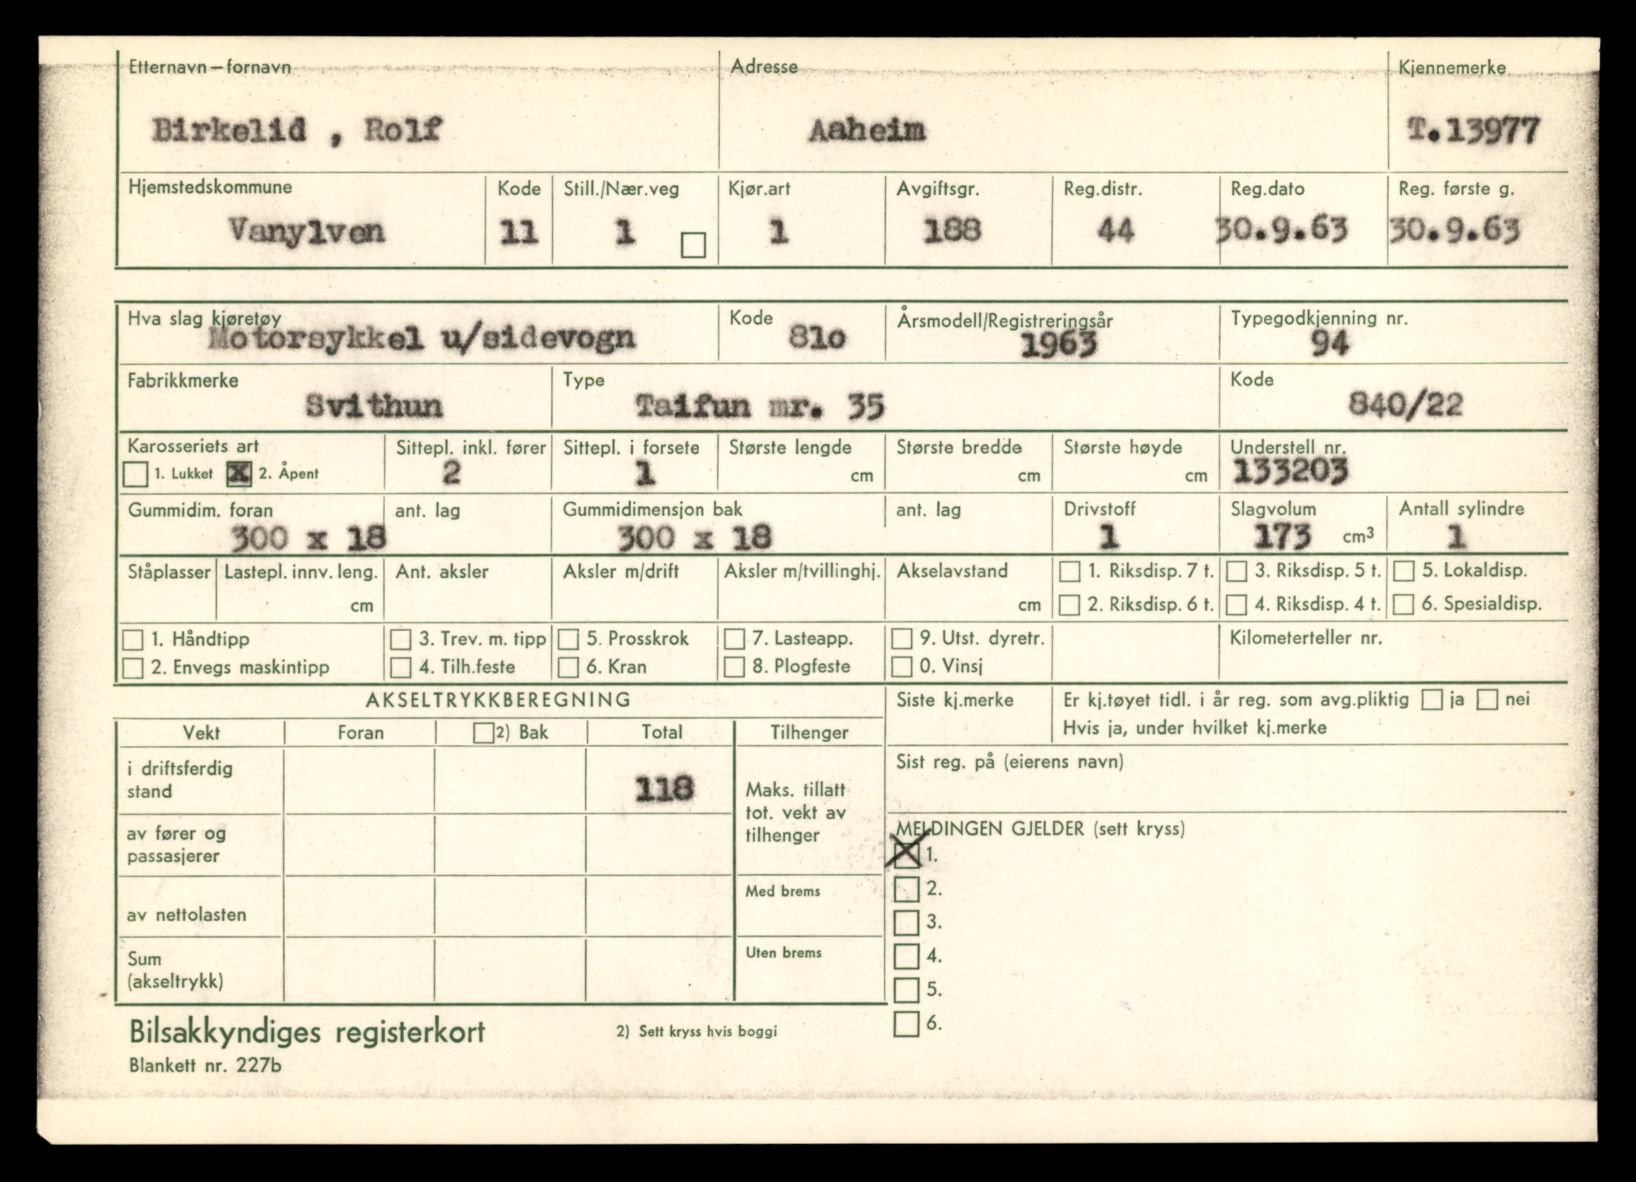 Etternavn – fornavn Adresse Kjennemerke
Birkelid , Rolf Aaheim T.13977
Hjemstedskommune Kode Still./Nær.veg Kjør.art Avgiftsgr. Reg.distr. Reg.dato Reg. første g.
Vanylven 11 1 1 188 44 30.9.63 30.9.63
Hva slag kjøretøy Kode Årsmodell/Registreringsår Typegodkjenning nr.
Motorsykkel u/sidevogn 810 1963 94
Fabrikkmerke Type Kode
Svithun Taifun mr. 35 840/22
Karosseriets art Sittepl. inkl. fører Sittepl. i forsete Største lengde Største bredde Største høyde Understell nr.
1. Lukket X 2. Åpent 2 1 cm cm cm 133203
Gummidim. foran ant. lag Gummidimensjon bak ant. lag Drivstoff Slagvolum Antall sylindre
300 x 18 300 x 18 1 173 cm³ 1
Ståplasser Lastepl. innv. leng. Ant. aksler Aksler m/drift Aksler m/tvillinghj. Akselavstand 1. Riksdisp. 7 t. 3. Riksdisp. 5 t. 5. Lokaldisp.
cm cm 2. Riksdisp. 6 t. 4. Riksdisp. 4 t. 6. Spesialdisp.
1. Håndtipp 3. Trev. m. tipp 5. Prosskrok 7. Lasteapp. 9. Utst. dyretr. Kilometerteller nr.
2. Envegs maskintipp 4. Tilh.feste 6. Kran 8. Plogfeste 0. Vinsj
AKSELTRYKKBEREGNING Siste kj.merke Er kj.tøyet tidl. i år reg. som avg.pliktig ja nei
Hvis ja, under hvilket kj.merke
Vekt Foran 2) Bak Total Tilhenger
Sist reg. på (eierens navn)
i driftsferdig
stand 118 Maks. tillatt
tot. vekt av
tilhenger
MELDINGEN GJELDER (sett kryss)
av fører og
passasjerer
X 1.
Med brems 2.
av nettolasten 3.
Sum Uten brems 4.
(akseltrykk) 5.
6.
Bilsakkyndiges registerkort 2) Sett kryss hvis boggi
Blankett nr. 227b